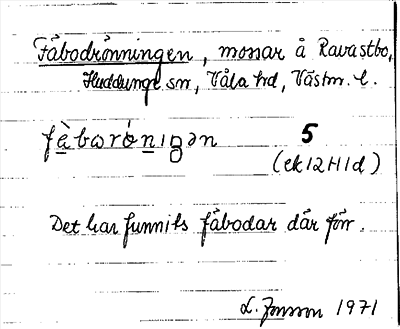 Fäbodrönningen, mossar å Ravastbo,
Huddunge sn, Våla hd, Västm. l.
fæ̀bωrónıŋən 5
(ek 12H1d)
Det har funnits fäbodar där förr.
L. Jonsson 1971